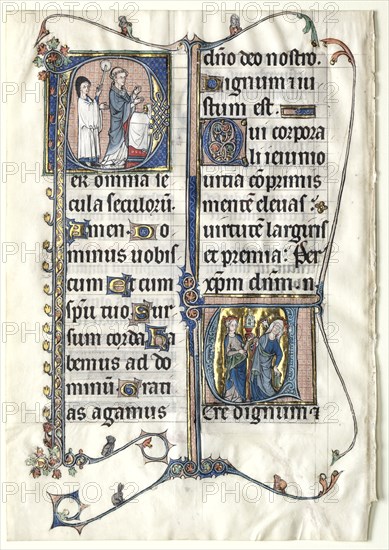 Per omnia se
cula seculorū.
Amen. Do
minus uobis
cum Et cum
spū tuo. Sur
sum corda. ha
bemus ad do
minū. Grati
as agamus
dño deo nostro.
Dignum & iu
stum est.
Qui corpora
li ieiunio
uitia cōprimis
mentē eleuas:
uirtutē largiris
et premia: Per
xp̄m dñm n.
Vere dignum &